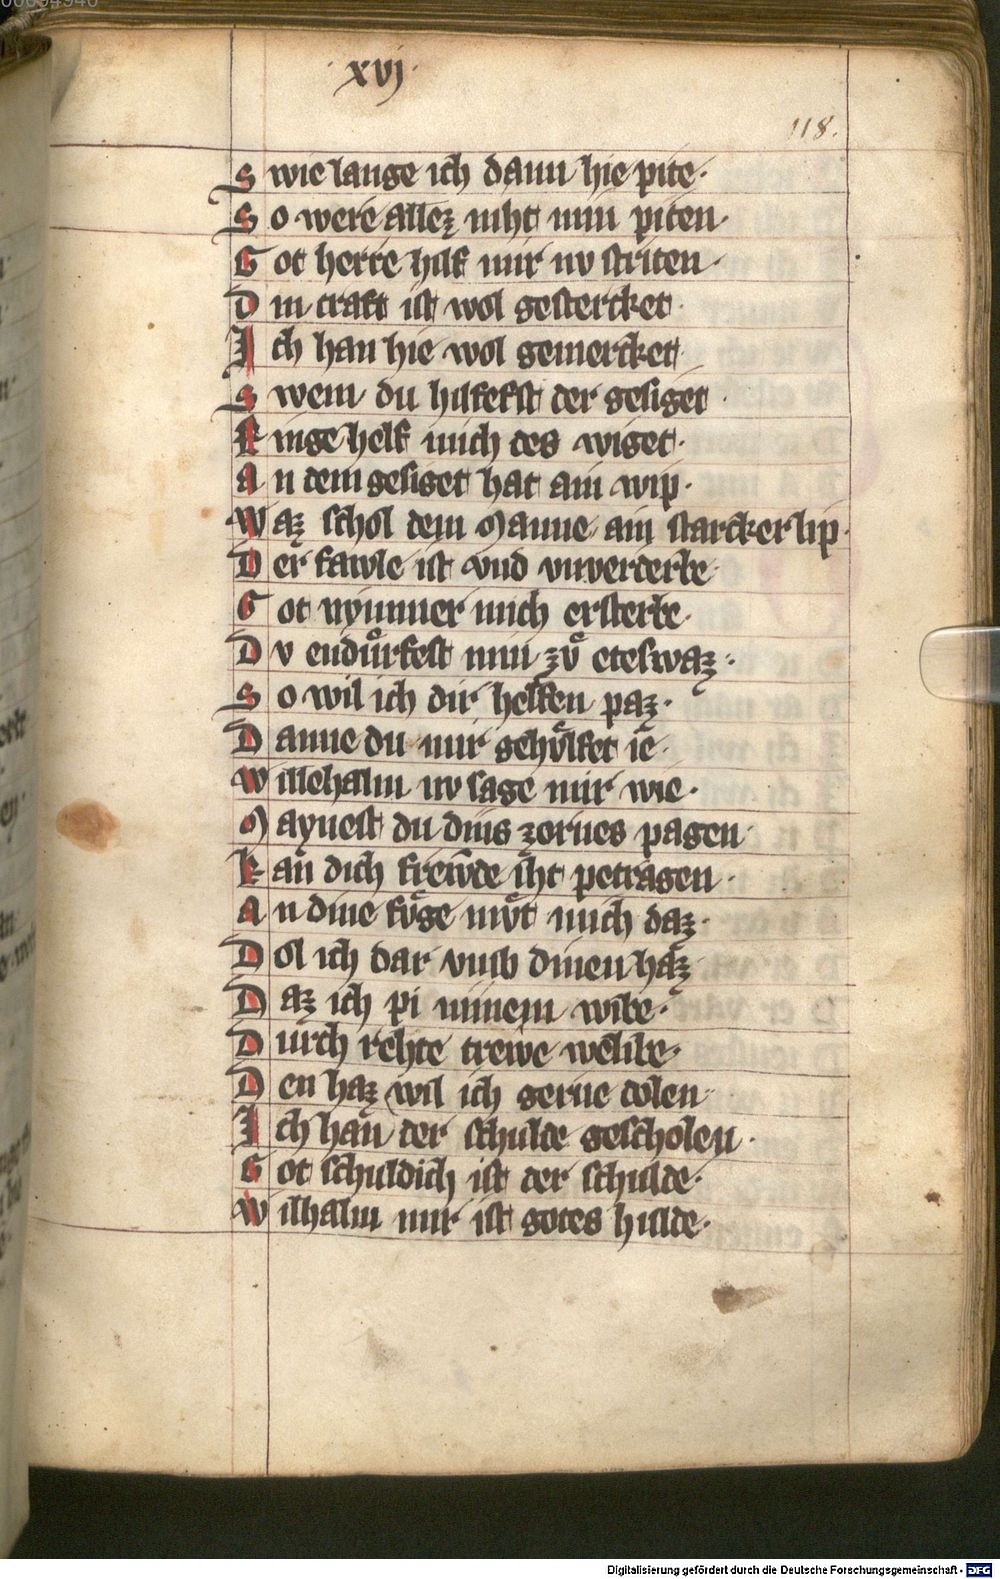 00094946
·xvj·
118.
S wie lange ich dann hie pite·
S o were allez niht min piten·
G ot herre hilf mir nv striten·
D in craft ist wol gestercket·
I ch han hie wol gemercket·
S wem du hilfefst der gesiget·
R inge helf mich des wiget·
A n dem gesiget hat ain wip·
W az schol dem Manne ain starcker lip·
D er fawle ist vnd vnverderbe·
G ot nymmer mich ersterbe·
D v endůrfest min zů eteswaz·
S o wil ich dir helffen paz·
D anne du mir gehůlfet ie·
W illehalm nv sage mir wie·
M aynest du dins zornes pagen·
K an dich frewde iht petragen·
A n dine fůge můt mich daz·
D ol ich dar vmb dinen haz·
D az ich pi minem wibe·
D urch rehte trewe welibe·
D en haz wil ich gerne dolen·
I ch han der schulde gescholen·
G ot schuldich ist der schulde·
W ilhalm mir ist gotes hulde·
Digitalisierung gefördert durch die Deutsche Forschungsgemeinschaft - DFG